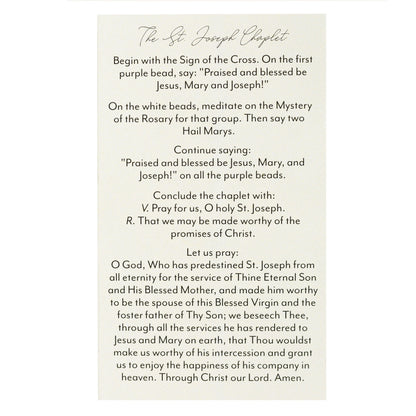 The St Joseph Chaplet
Begin with the Sign of the Cross. On the first
purple bead, say: "Praised and blessed be
Jesus, Mary and Joseph!"
On the white beads, meditate on the Mystery
of the Rosary for that group. Then say two
Hail Marys.
Continue saying:
"Praised and blessed be Jesus, Mary, and
Joseph!" on all the purple beads.
Conclude the chaplet with:
V. Pray for us, O holy St. Joseph.
R. That we may be made worthy of the
promises of Christ.
Let us pray:
O God, Who has predestined St. Joseph from
all eternity for the service of Thine Eternal Son
and His Blessed Mother, and made him worthy
to be the spouse of this Blessed Virgin and the
foster father of Thy Son; we beseech Thee,
through all the services he has rendered to
Jesus and Mary on earth, that Thou wouldst
make us worthy of his intercession and grant
us to enjoy the happiness of his company in
heaven. Through Christ our Lord. Amen.